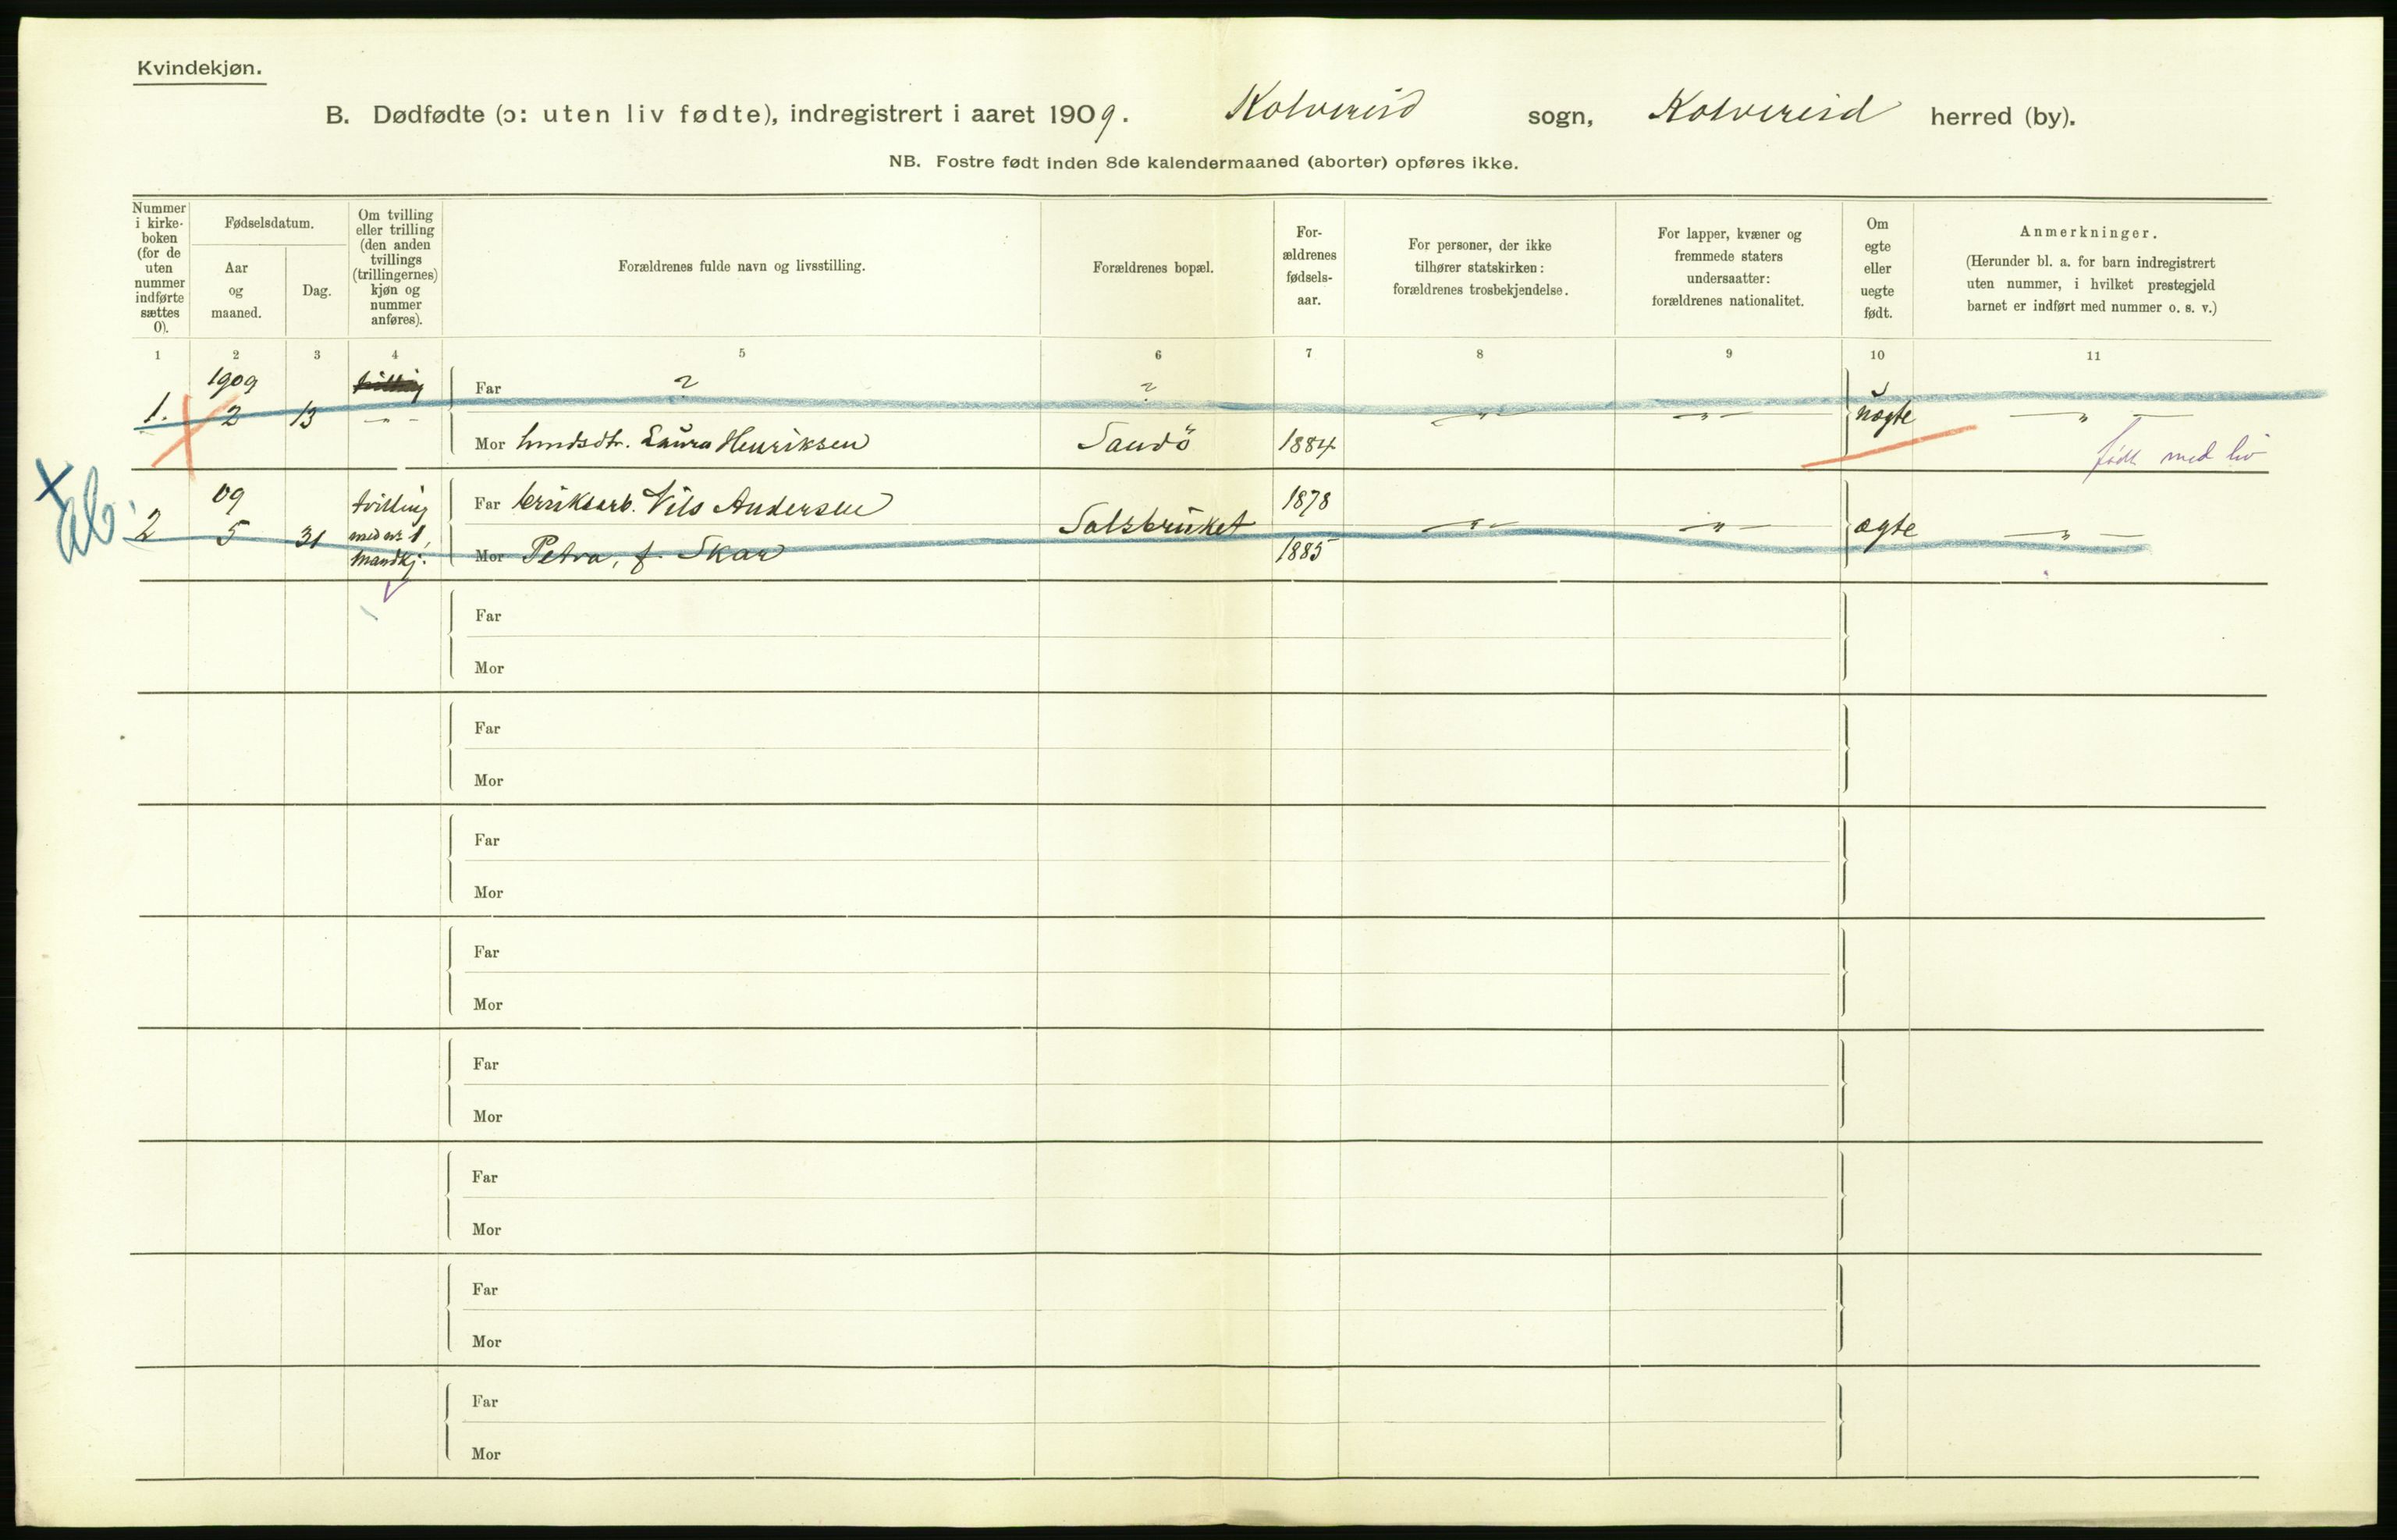 Kvindekjøn.
B. Dødfødte (ɔ: uten liv fødte), indregistrert i aaret 1909. Kolvereid sogn, Kolvereid herred (by).
NB. Fostre født inden 8de kalendermaaned (aborter) opføres ikke.
Nummer
i kirke-
boken
(for de
uten
nummer
indførte
sættes
0).
Fødselsdatum.
Aar
og
maaned.
Dag.
Om tvilling
eller trilling
(den anden
tvillings
(trillingernes)
kjøn og
nummer
anføres).
Forældrenes fulde navn og livsstilling.
Forældrenes bopæl.
For-
ældrenes
fødsels-
aar.
For personer, der ikke
tilhører statskirken:
forældrenes trosbekjendelse.
For lapper, kvæner og
fremmede staters
undersaatter:
forældrenes nationalitet.
Om
egte
eller
uegte
født.
Anmerkninger.
(Herunder bl. a. for barn indregistrert
uten nummer, i hvilket prestegjeld
barnet er indført med nummer o. s. v.)
1 2 3 4 5 6 7 8 9 10 11
1909
Far ? ?
1. 2 13 - „ - — „ — — „ — uægte — „ —
Mor Laura Henriksen Sandö 1884
født med liv
09 tvilling Far Nils Andersen 1878
2 5 31 med nr 1, Salsbruket — „ — — „ — ægte — „ —
mandkj. Mor Petra, f. Skar 1885
Far
Mor
Far
Mor
Far
Mor
Far
Mor
Far
Mor
Far
Mor
Far
Mor
Far
Mor